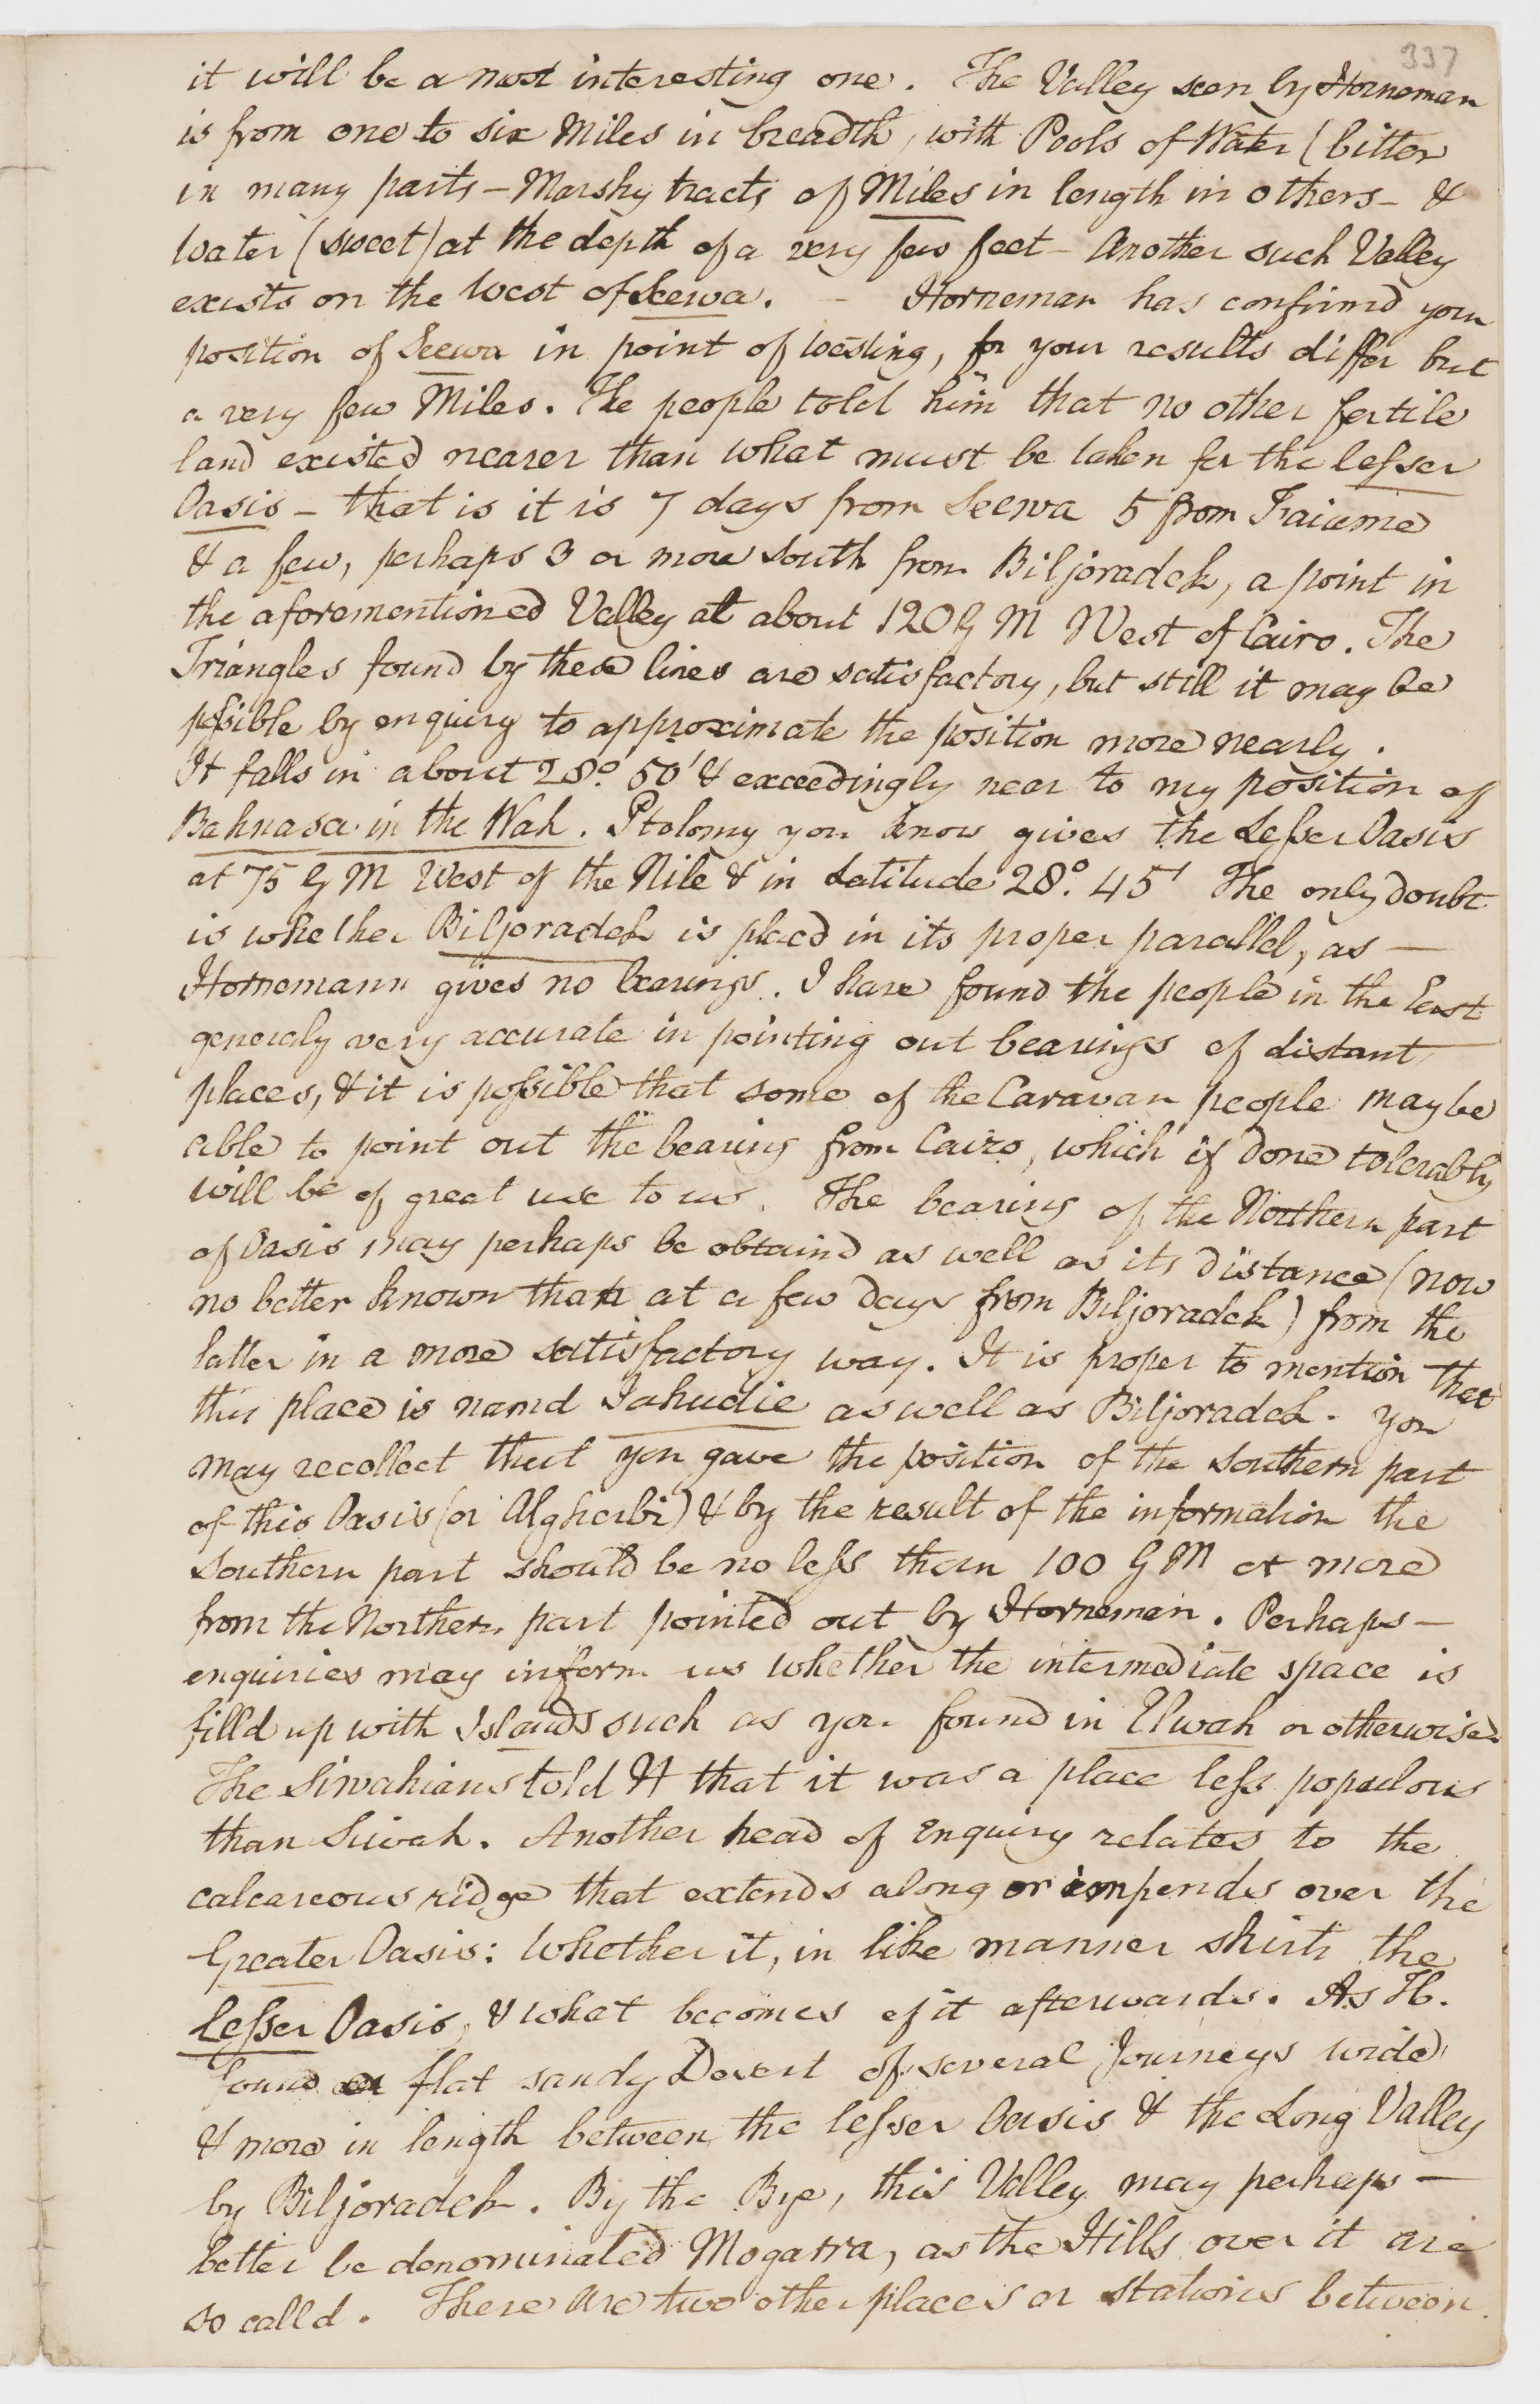 337
it will be a most interesting one. The Valley seen by Horneman
is from one to six Miles in breadth, with Pools of Water (bitter
in many parts – Marshy tracts of Miles in length in others – &
Water (sweet) at the depth of a very few feet – Another such Valley
exists on the West of Seewa. – Horneman has confirmd your
position of Seewa in point of westing, for your results differ but
a very few Miles. The people told him that no other fertile
land existed nearer than what must be taken for the lesser
Oasis – that is it is 7 days from Seewa 5 from Faiume
& a few, perhaps 3 or more South from Biljoradek, a point in
the aforementioned Valley at about 120 G M West of Cairo. The
Triangles found by these lines are satisfactory, but still it may be
possible by enquiry to approximate the position more nearly.
It falls in about 28°. 50' & exceedingly near to my position of
Bahnasa in the Wah. Ptolomy you know gives the Lesser Oasis
at 75 G M West of the Nile & in Latitude 28°. 45' The only doubt
is whether Biljoradek is placd in its proper parallel, as —
Hornemann gives no bearings. I have found the people in the East
generaly very accurate in pointing out bearings of distant
places, & it is possible that some of the Caravan people may be
able to point out the bearing from Cairo, which if done tolerably
will be of great use to us. The bearing of the Northern part
of Oasis may perhaps be obtaind as well as its distance (now
no better known than at a few days from Biljoradek) from the
latter in a more satisfactory way. It is proper to mention that
this place is namd Jahudie as well as Biljoradek. You
may recollect that you gave the position of the Southern part
of this Oasis (or Algherbi) & by the result of the information the
Southern part should be no less than 100 G M or more
from the Northern part pointed out by Horneman. Perhaps —
enquiries may inform us whether the intermediate space is
filld up with Islands such as you found in Elwah or otherwise
The Siwahians told H that it was a place less populous
than Siwah. Another head of Enquiry relates to the
calcareous ridge that extends along or impends over the
Greater Oasis: Whether it, in like manner skirts the
Lesser Oasis, & what becomes of it afterwards. As H.
found a flat sandy Desert of several Journeys wide
& more in length between the lesser Oasis & the Long Valley
by Biljoradek. By the Bye, this Valley may perhaps —
better be denominated Mogarra, as the Hills over it are
so calld. There are two other places or stations between